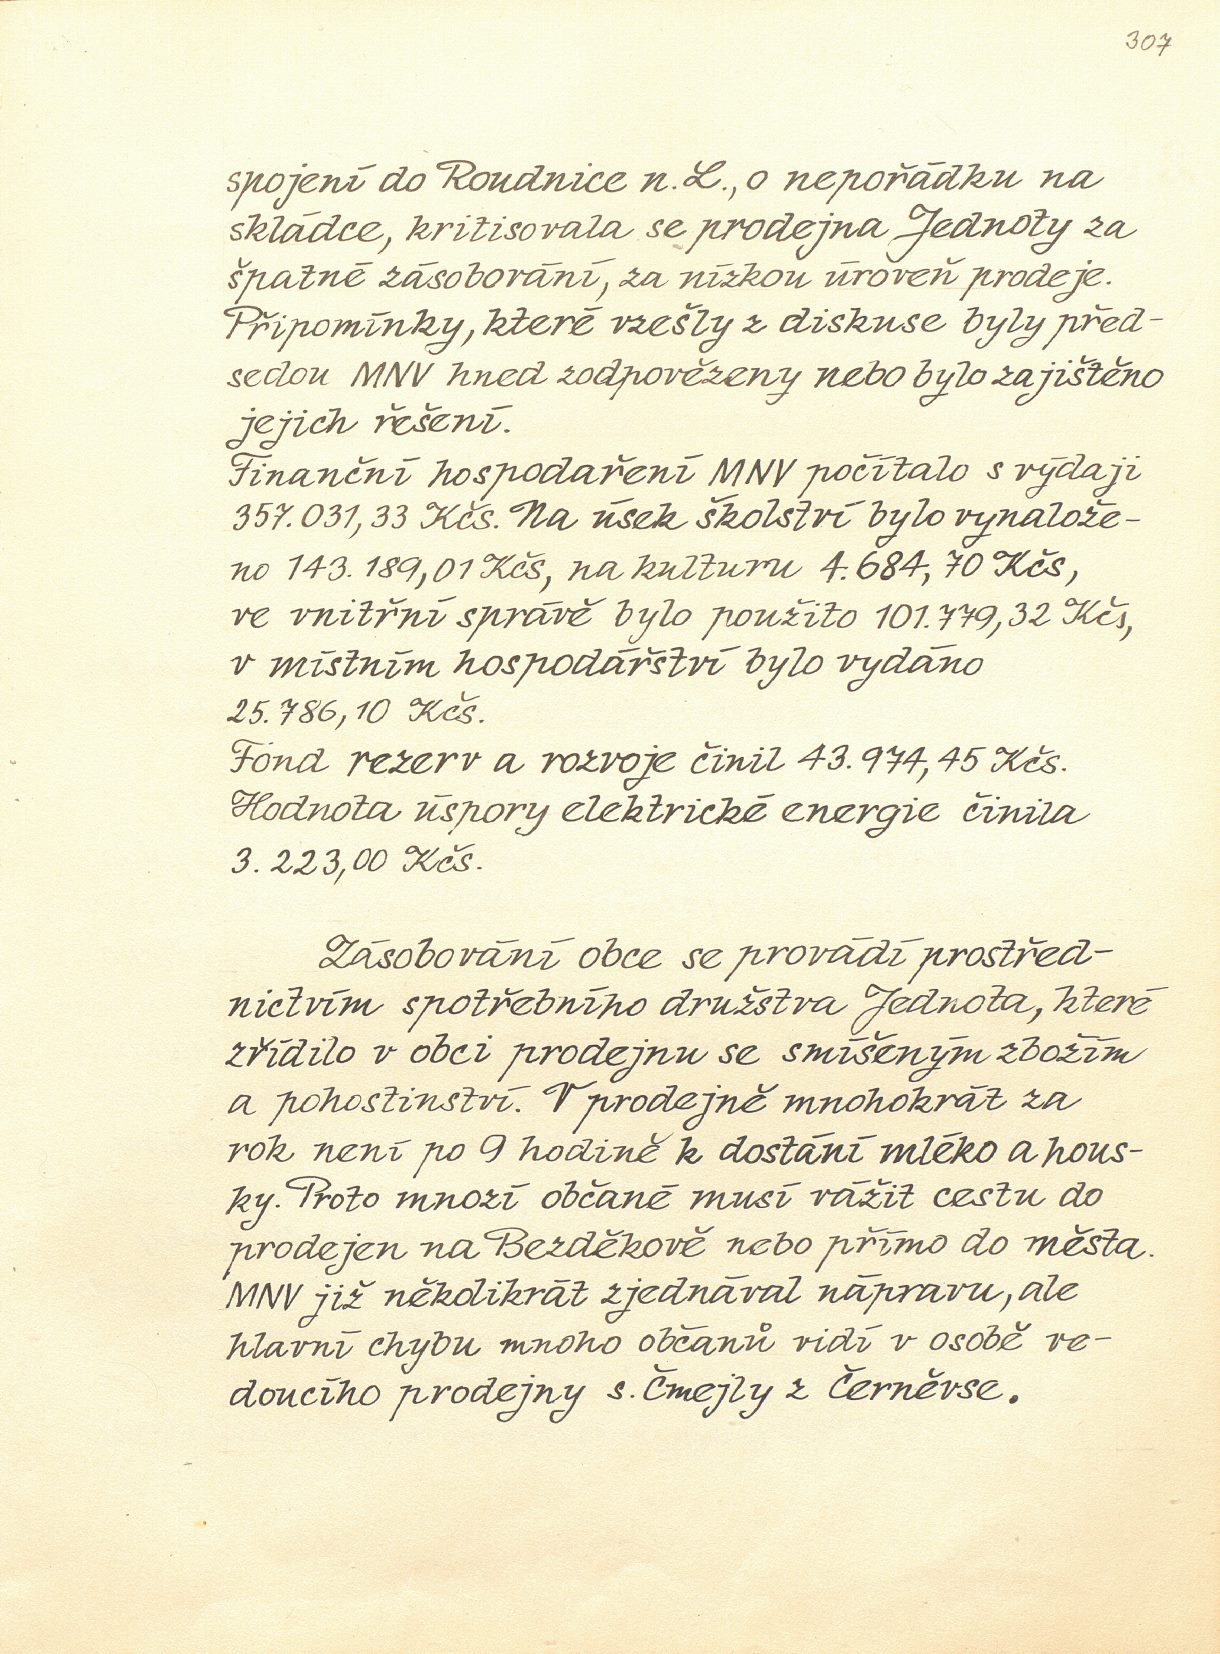 307
spojení do Roudnice n. L., o nepořádku na
skládce, kritisovala se prodejna Jednoty za
špatné zásobování, za nízkou úroveň prodeje.
Připomínky, které vzešly z diskuse byly před-
sedou MNV hned zodpovězeny nebo bylo zajištěno
jejich řešení.
Finanční hospodaření MNV počítalo s výdaji
357.031,33 Kčs. Na úsek školství bylo vynalože-
no 143.189,01 Kčs, na kulturu 4.684,70 Kčs,
ve vnitřní správě bylo použito 101.779,32 Kčs,
v místním hospodářství bylo vydáno
25.786,10 Kčs.
Fond rezerv a rozvoje činil 43.974,45 Kčs.
Hodnota úspory elektrické energie činila
3.223,00 Kčs.
Zásobování obce se provádí prostřed-
nictvím spotřebního družstva Jednota, které
zřídilo v obci prodejnu se smíšeným zbožím
a pohostinství. V prodejně mnohokrát za
rok není po 9 hodině k dostání mléko a hous-
ky. Proto mnozí občané musí vážit cestu do
prodejen na Bezděkově nebo přímo do města.
MNV již několikrát zjednával nápravu, ale
hlavní chybu mnoho občanů vidí v osobě ve-
doucího prodejny s. Čmejly z Černěvse.